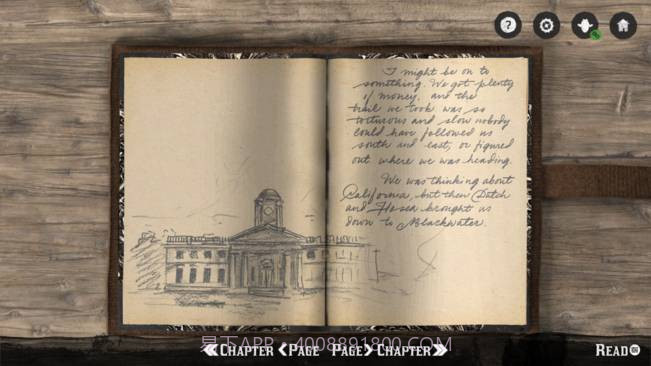 I might be on to
something. We got plenty
of money, and the
trail we took was so
torturous and slow nobody
could have followed us
south and east, or figured
out where we was heading.
We was thinking about
California, but then Dutch
and Hosea brought us
down to Blackwater.
易下APP 4008891800.COM
Chapter Page Page Chapter
Read